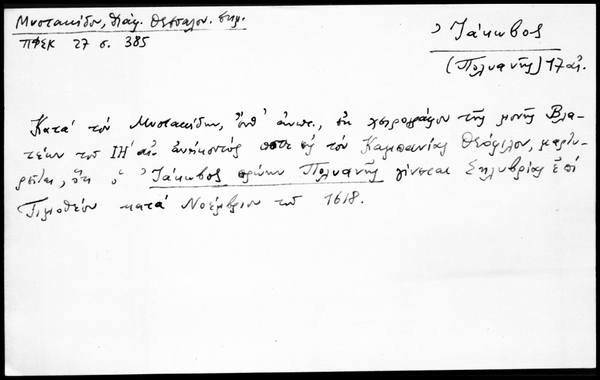 Μυστακίδου, διάφ. Θεσσαλον. σημ.
ΠΦΣΚ 27 σ. 385
Ἰάκωβος
(Πολυανῆς) 17 αἰ.
Κατὰ τὸν Μυστακίδην, ἔνθ' ἀνωτ., ἐν χειρογράφῳ τῆς μονῆς Βλα-
τέων τοῦ ΙΗ' αἰ. ἀνήκοντός ποτε εἰς τὸν Καμπανίας Θεόφιλον, μαρτυ-
ρεῖται, ὅτι ὁ Ἰάκωβος πρώην Πολυανῆς γίνεται Σηλυβρίας ἐπὶ
Τιμοθέου κατὰ Νοέμβριον τοῦ 1618.